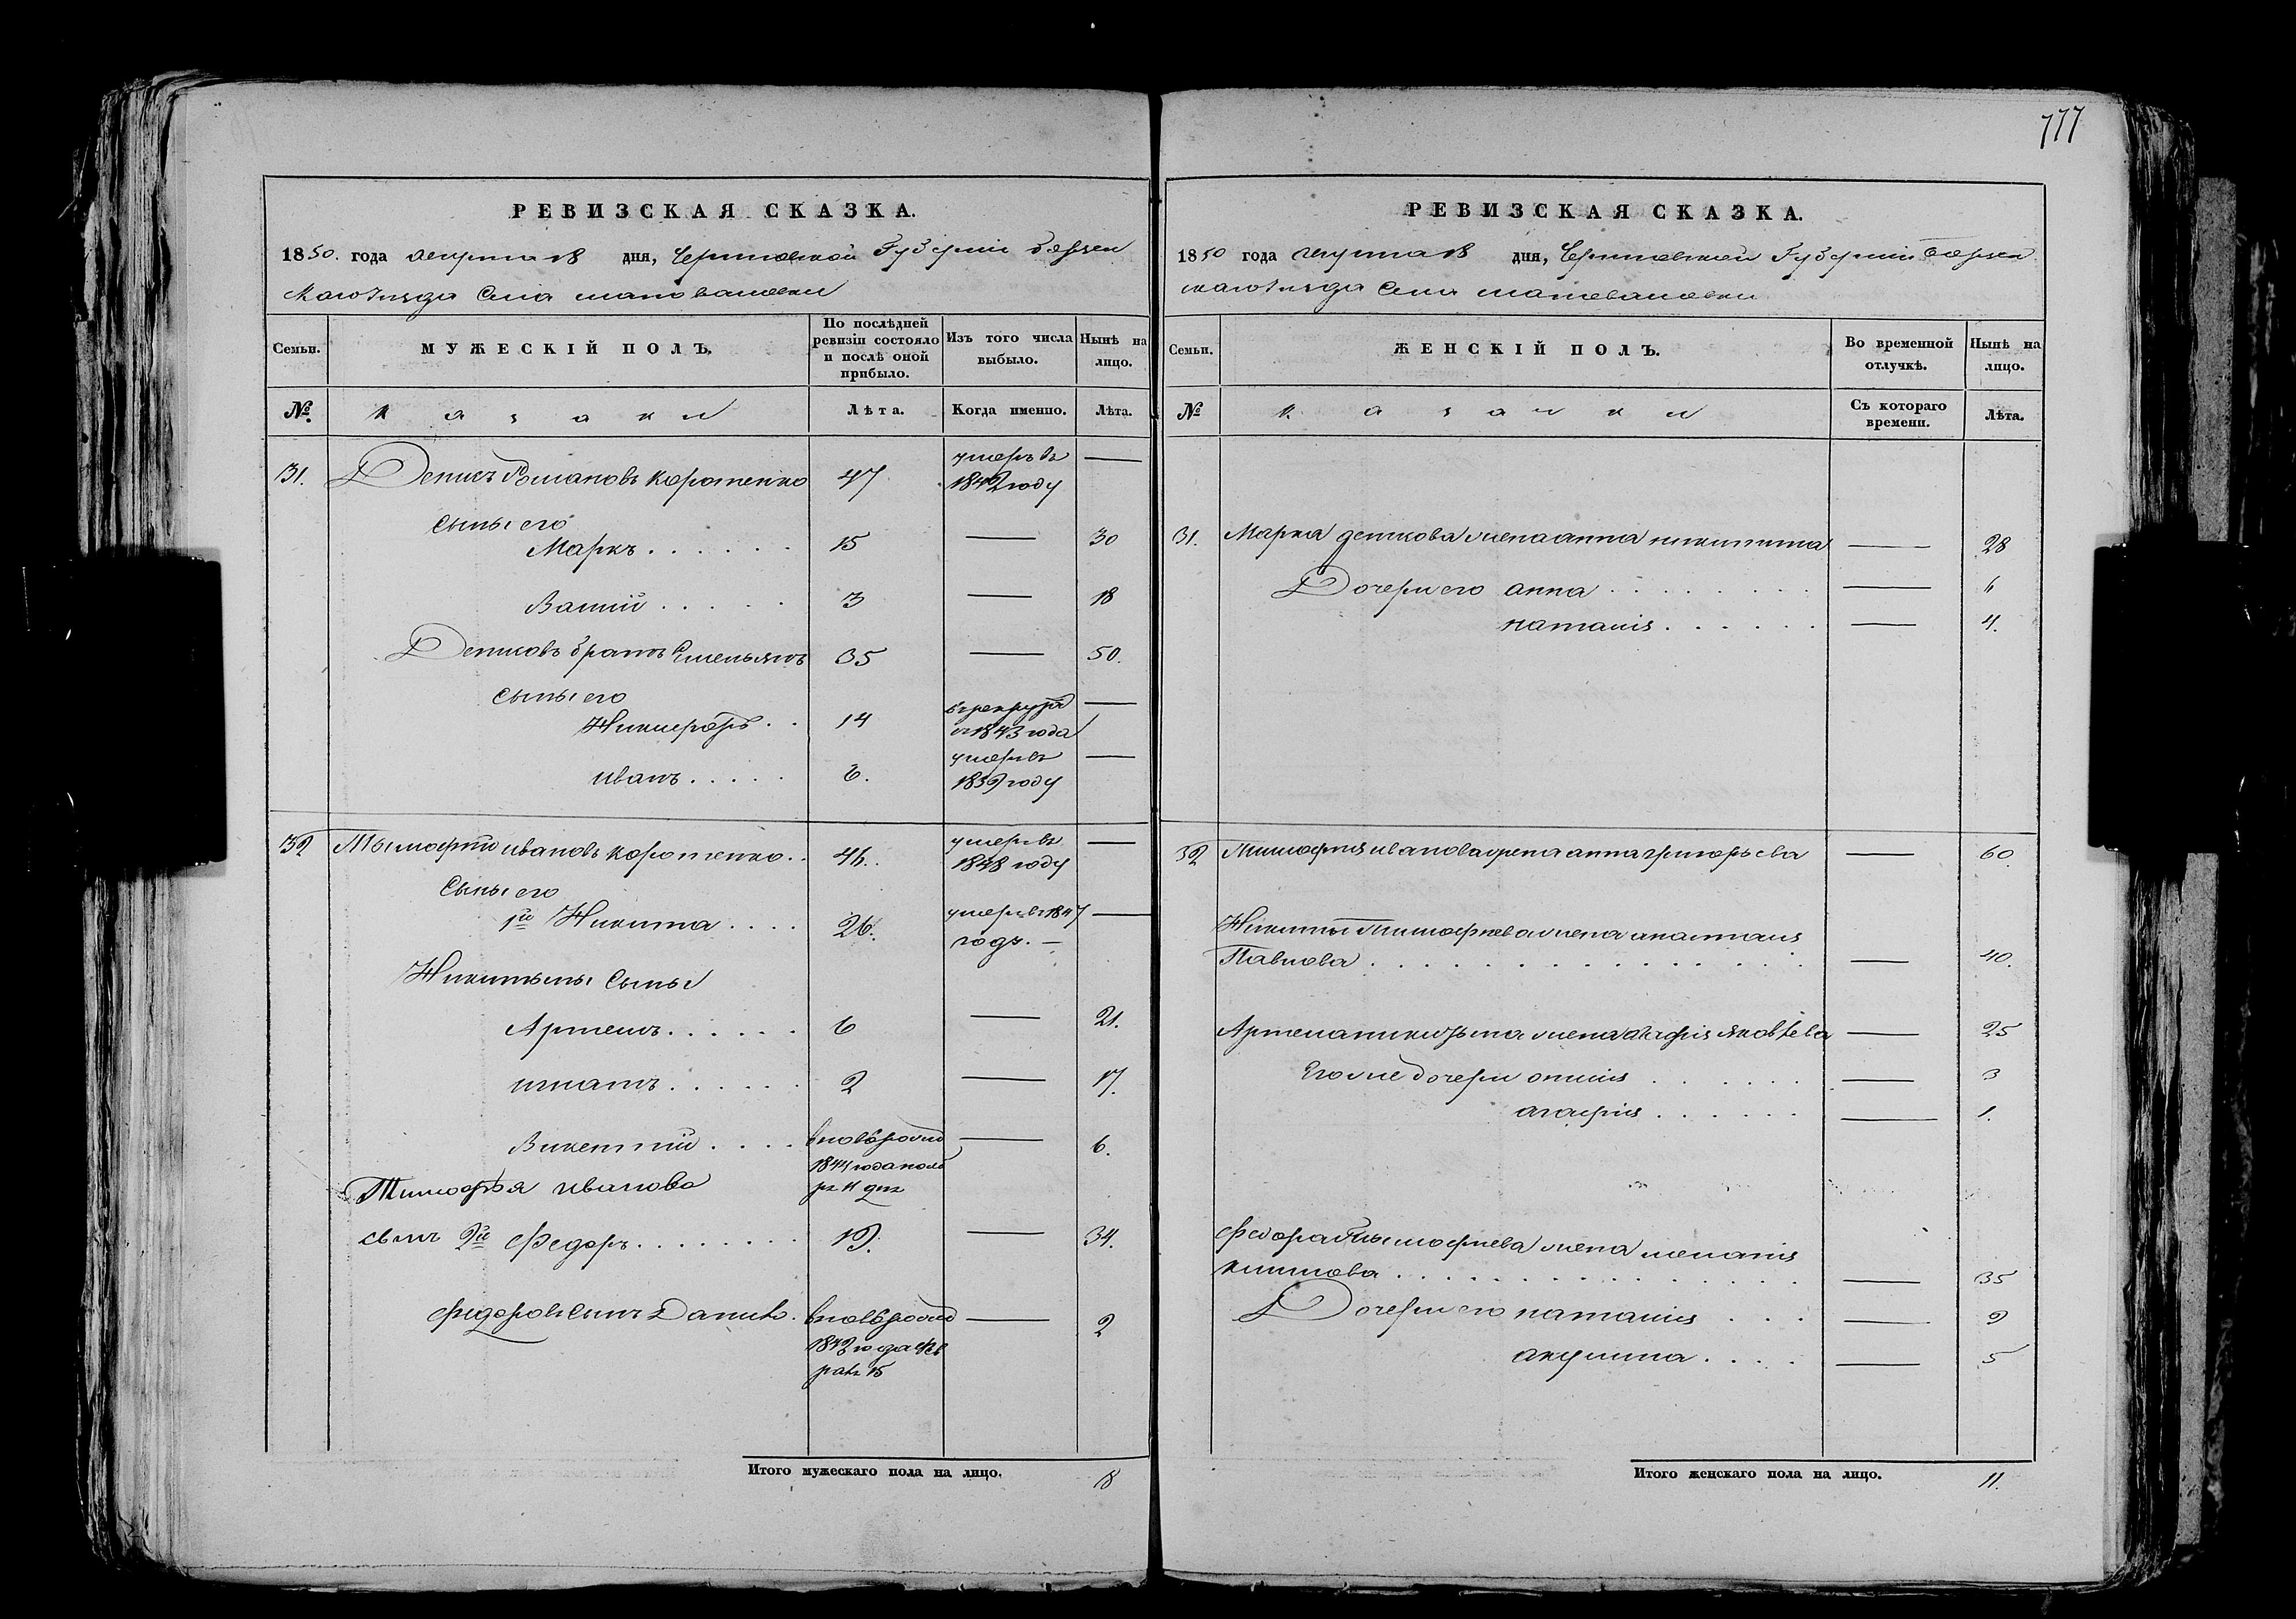 777
РЕВИЗСКАЯ СКАЗКА.
1850. года августа 18 дня, Черниговской Губерніи Борзен
скаго уезда Села
Семьи.
МУЖЕСКІЙ ПОЛЪ.
По послѣдней ревизіи состояло и послѣ оной прибыло.
Изъ того числа выбыло.
Нынѣ на лицо.
№
казаки
Лѣта.
Когда именно.
Лѣта.
31. Денисъ Романовъ Коротенко 47 умеръ въ 1842 году —
Сыны его
Маркъ . . . . . . 15 — 30
Василій . . . . . 3 — 18
Денисовъ братъ Емельянъ 35 — 50.
Сыны его
Никифоръ . . 14 в рекрута с 1843 года —
иванъ . . . . . 6. умеръ въ 1839 году —
32 Тымофій ивановъ Коротенко . . 46. умеръ въ 1848 году —
Сыны его
1й Никита . . . . 26. умеръ в 1847 годъ. —
Никитыны Сыны
Артемъ . . . . . . 6 — 21.
игнатъ . . . . . . 2 — 17.
Викентій . . . . вновь рожд 1844 года нояб ря 11 дня — 6.
Тимофѣя иванова
сынъ 2й Федоръ . . . . . . . . 19. — 34.
Федоровъ Сынъ Данило . вновь рожд года Фев раля 15 — 2
Итого мужескаго пола на лицо. 8
РЕВИЗСКАЯ СКАЗКА.
1850 года августа 18 дня, Черниговской Губерніи Борзен
скаго уезда Села
Семьи.
ЖЕНСКІЙ ПОЛЪ.
Во временной отлучкѣ.
Нынѣ на лицо.
№
казачки
Съ котораго времени.
Лѣта.
31. Марка денисова жена анна никитина — 28
Дочери его анна . . . . . . . . — 6
наталія . . . . . . — 4.
32 Тимофія иванова жена анна григорьева — 60.
Никиты тимофіева жена анастасія
Павлова . . . . . . . . . . . . . . — 40.
Артема никитына жена агафія яковлева — 25
Его же дочери . . . . . . — 3
агафія . . . . . . — 1.
Федора тымофіева жена меланія
климова . . . . . . . . . . . . . . — 35
Дочери его наталія . . . — 9
акулина . . . . — 5
Итого женскаго пола на лицо. 11.